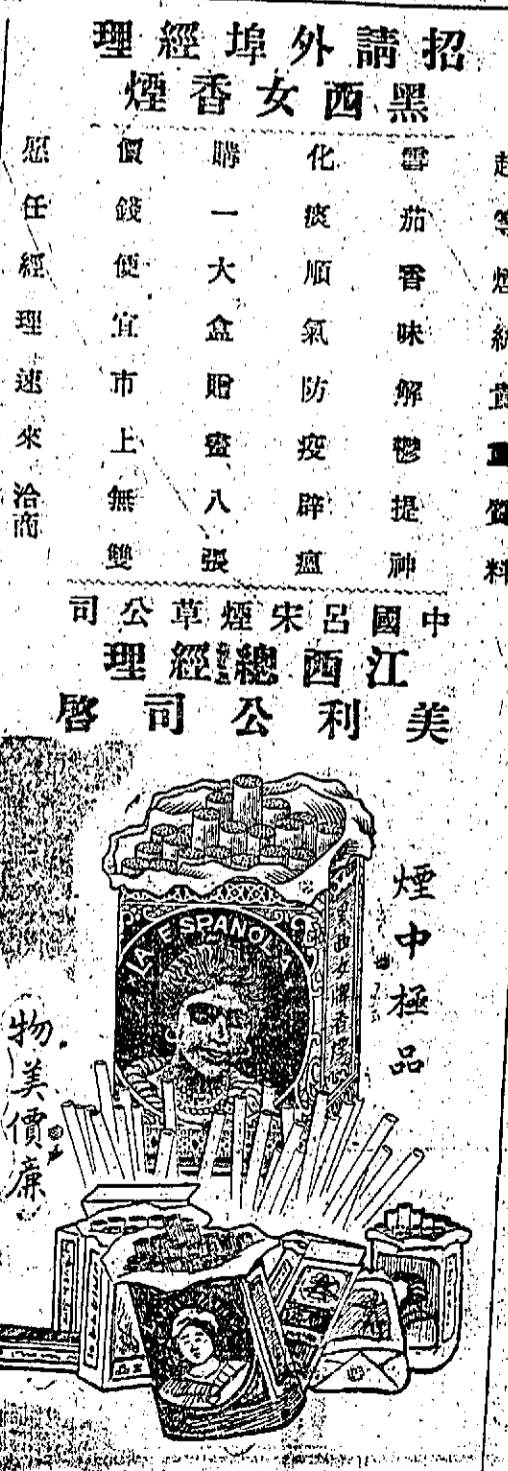 招請外埠經理
黑西女香煙
超等煙絲貴重質料
雪茄香味解鬱提神
化痰順氣防疫辟瘟
購一大盒贈畫八張
價錢便宜市上無雙
愿任經理速來洽商
中國呂宋煙草公司
江西總經理
美利公司啓
煙中極品
LA ESPANOLA
黑西女牌香煙
物美價廉